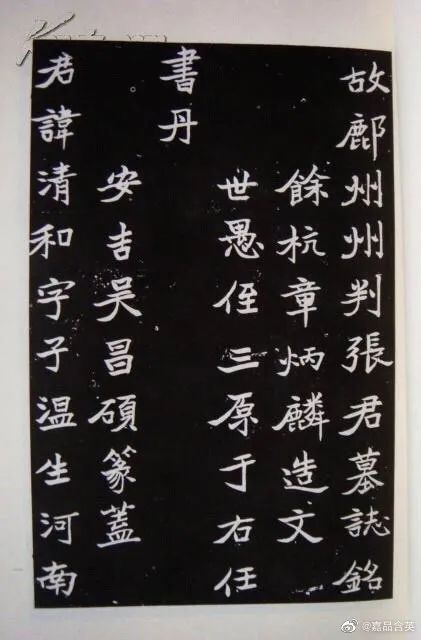 故鄜州州判張君墓誌銘
餘杭章炳麟造文
世愚侄三原于右任
書丹
安吉吳昌碩篆蓋
君諱清和字子温生河南
@嘉品含英